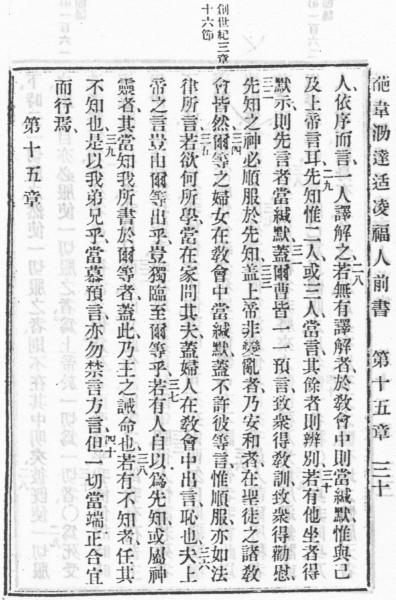 創世紀三章
十六節
葩韋泐達适凌福人前書 第十五章 三十
人依序而言一人譯解之若無有譯解者於教會中則當緘默惟與己
二八
及上帝言耳先知惟二人或三人當言其餘者則辨別若有他坐者得
二九 三十
默示則先言者當緘默蓋爾曹皆一一預言致衆得教訓致衆得勸慰
三一
先知之神必順服於先知蓋上帝非變亂者乃安和者在聖徒之諸教
三二 三三
會皆然爾等之婦女在教會中當緘默蓋不許彼等言惟順服亦如法
三四
律所言若欲何所學當在家問其夫蓋婦人在教會中出言恥也夫上
三五 三六
帝之言豈由爾等出乎豈獨臨至爾等乎若有人自以爲先知或屬神
三七
靈者其當知我所書於爾等者蓋此乃主之誡命也若有不知者任其
三八
不知也是以我弟兄乎當慕預言亦勿禁言方言但一切當端正合宜
三九 四十
而行焉
第十五章